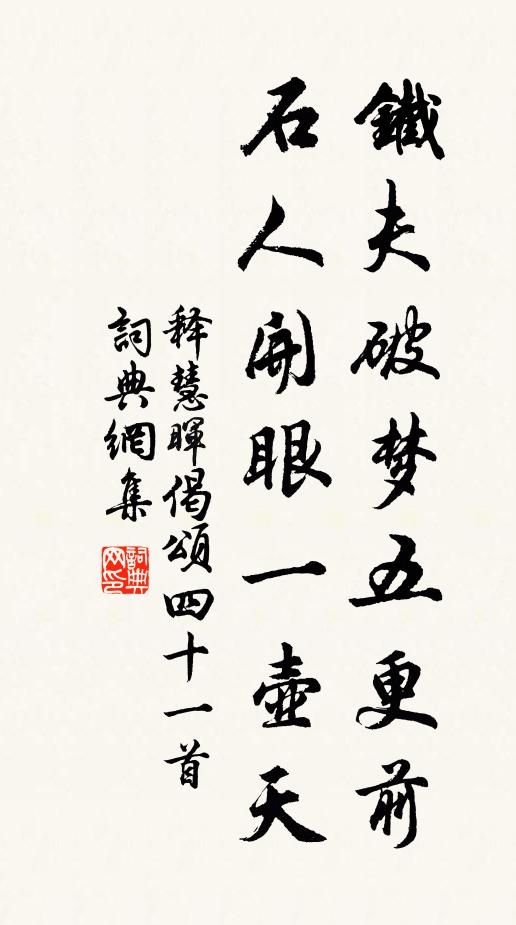 鐵夫破梦五更前
石人開眼一壺天
释慧暉偈頌四十一首
詞典網集
詞典网印